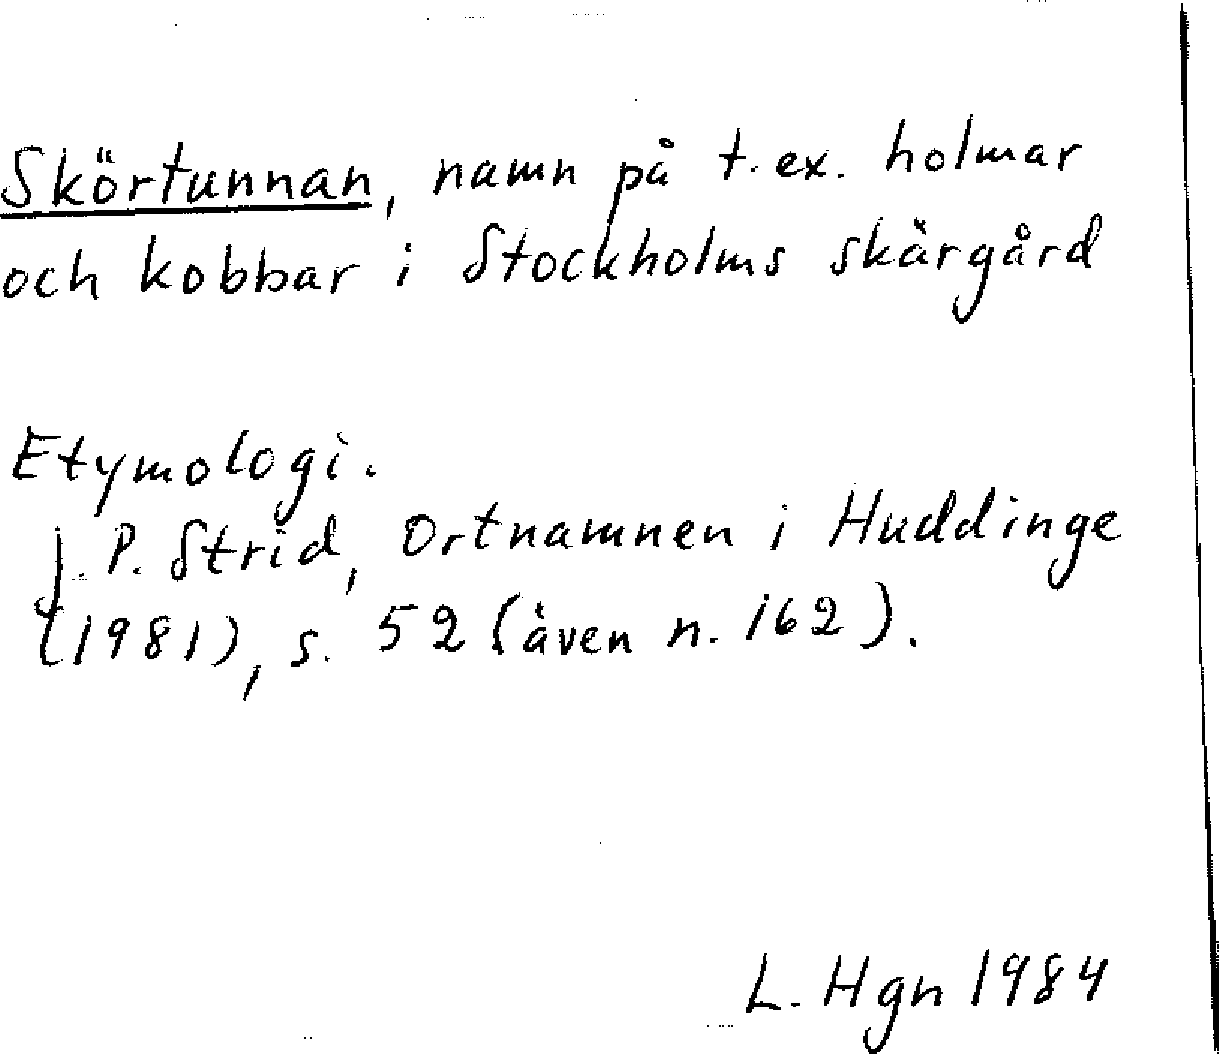 Skörtunnan, namn på t.ex. holmar
och kobbar i Stockholms skärgård
Etymologi.
J.P. Strid, Ortnamnen i Huddinge
(1981), s. 52 (även n. 162).
L. Hgn 1984